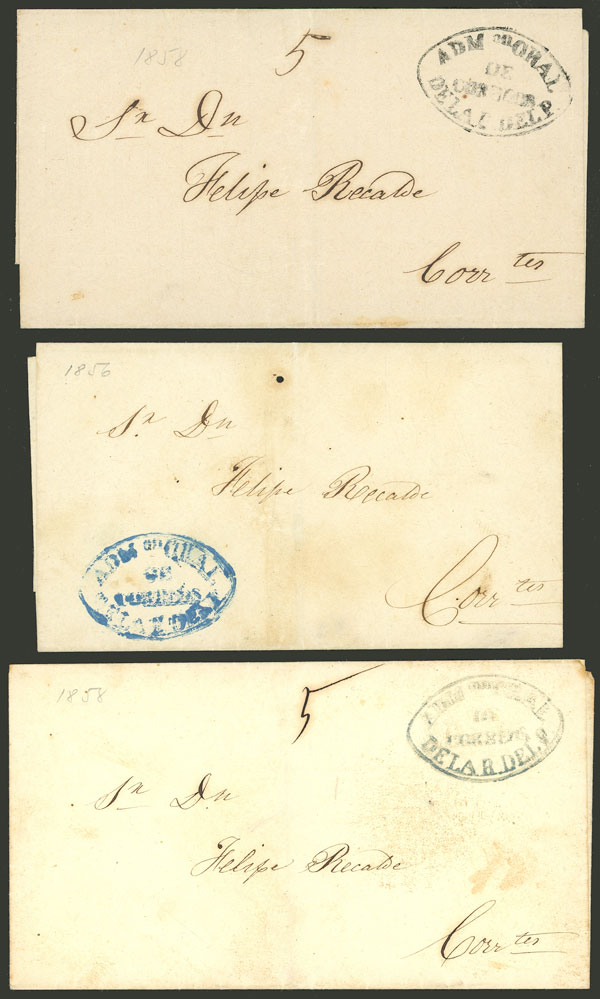 1858
5
ADM on GRAL
DE
CORREOS
DE LA R DEL P
Sr Dn
Felipe Recalde
Corr tes
1856
Sr Dn
Felipe Recalde
ADM on GRAL
DE
CORREOS
DE LA R DEL P
Corr tes
1858
5
ADM on GRAL
DE
CORREOS
DE LA R DEL P
Sr Dn
Felipe Recalde
Corr tes